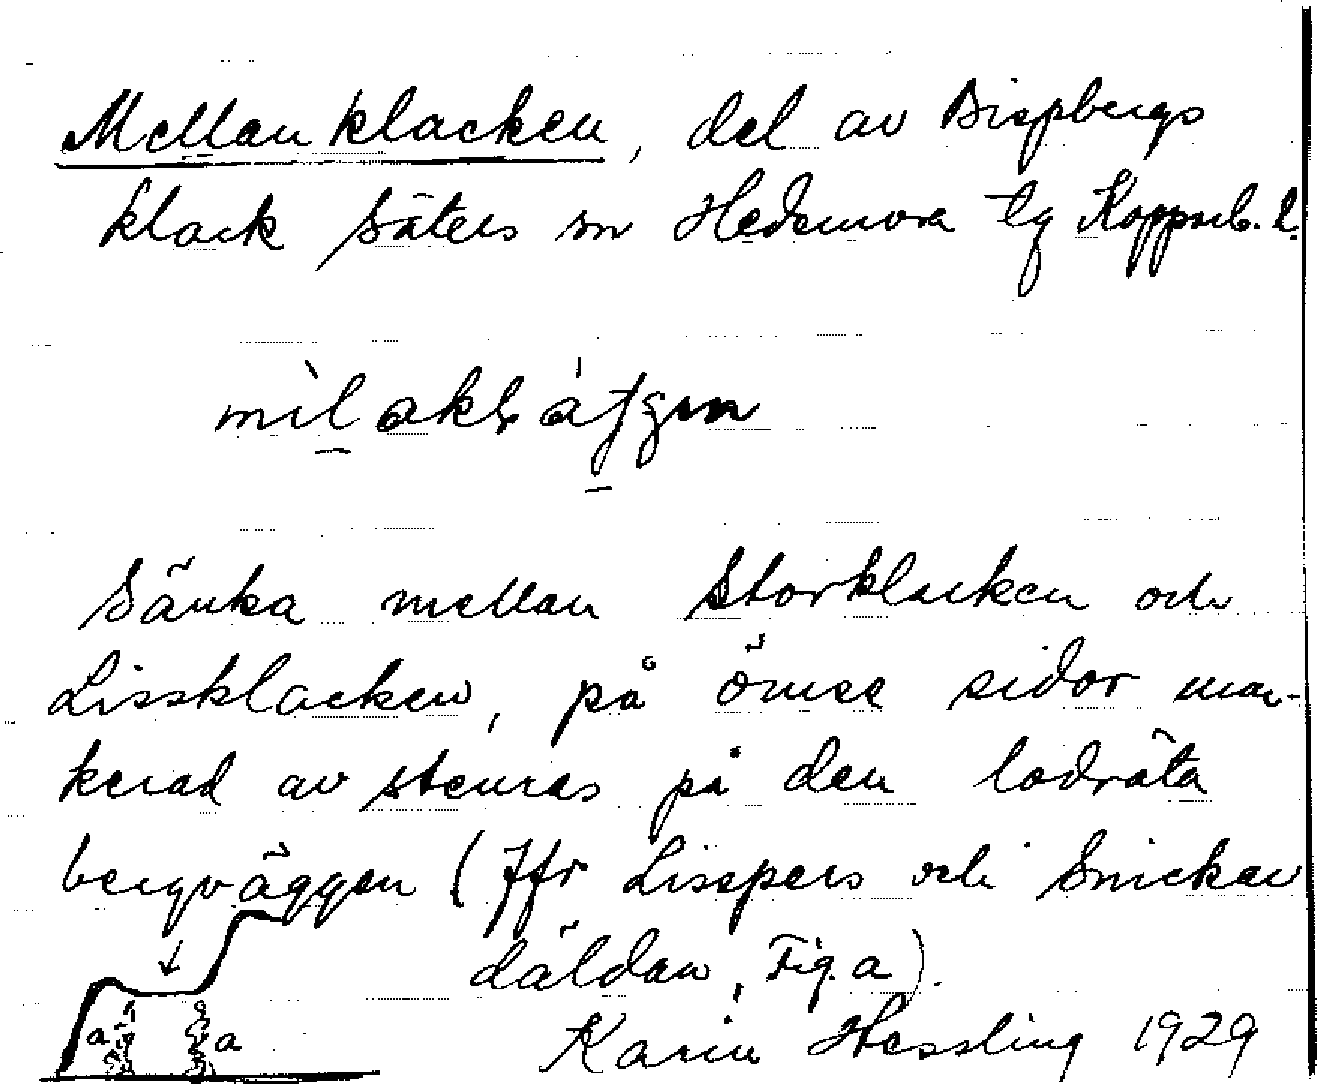 Mellanklacken, del av Bispbergs
klack Säters sn Hedemora tg Kopparb. l.
Sänka mellan Storklacken och
Lissklacken, på ömse sidor mar-
kerad av stenras på den lodräta
bergväggen (Jfr Lisspers och Snickar
däldan, Fig. a).
a a
Karin Hessling 1929